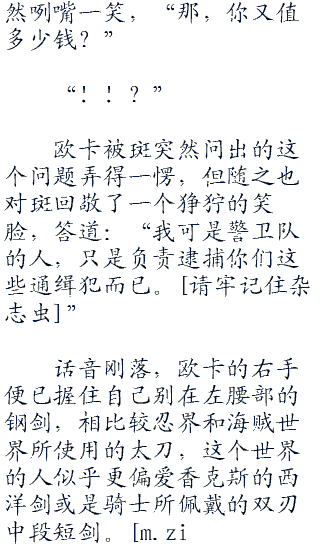 然咧嘴一笑，“那，你又值
多少钱？”
“！！？”
欧卡被斑突然问出的这
个问题弄得一愣，但随之也
对斑回敬了一个狰狞的笑
脸，答道：“我可是警卫队
的人，只是负责逮捕你们这
些通缉犯而已。[请牢记住杂
志虫]”
话音刚落，欧卡的右手
便已握住自己别在左腰部的
钢剑，相比较忍界和海贼世
界所使用的太刀，这个世界
的人似乎更偏爱香克斯的西
洋剑或是骑士所佩戴的双刃
中段短剑。[m.zi